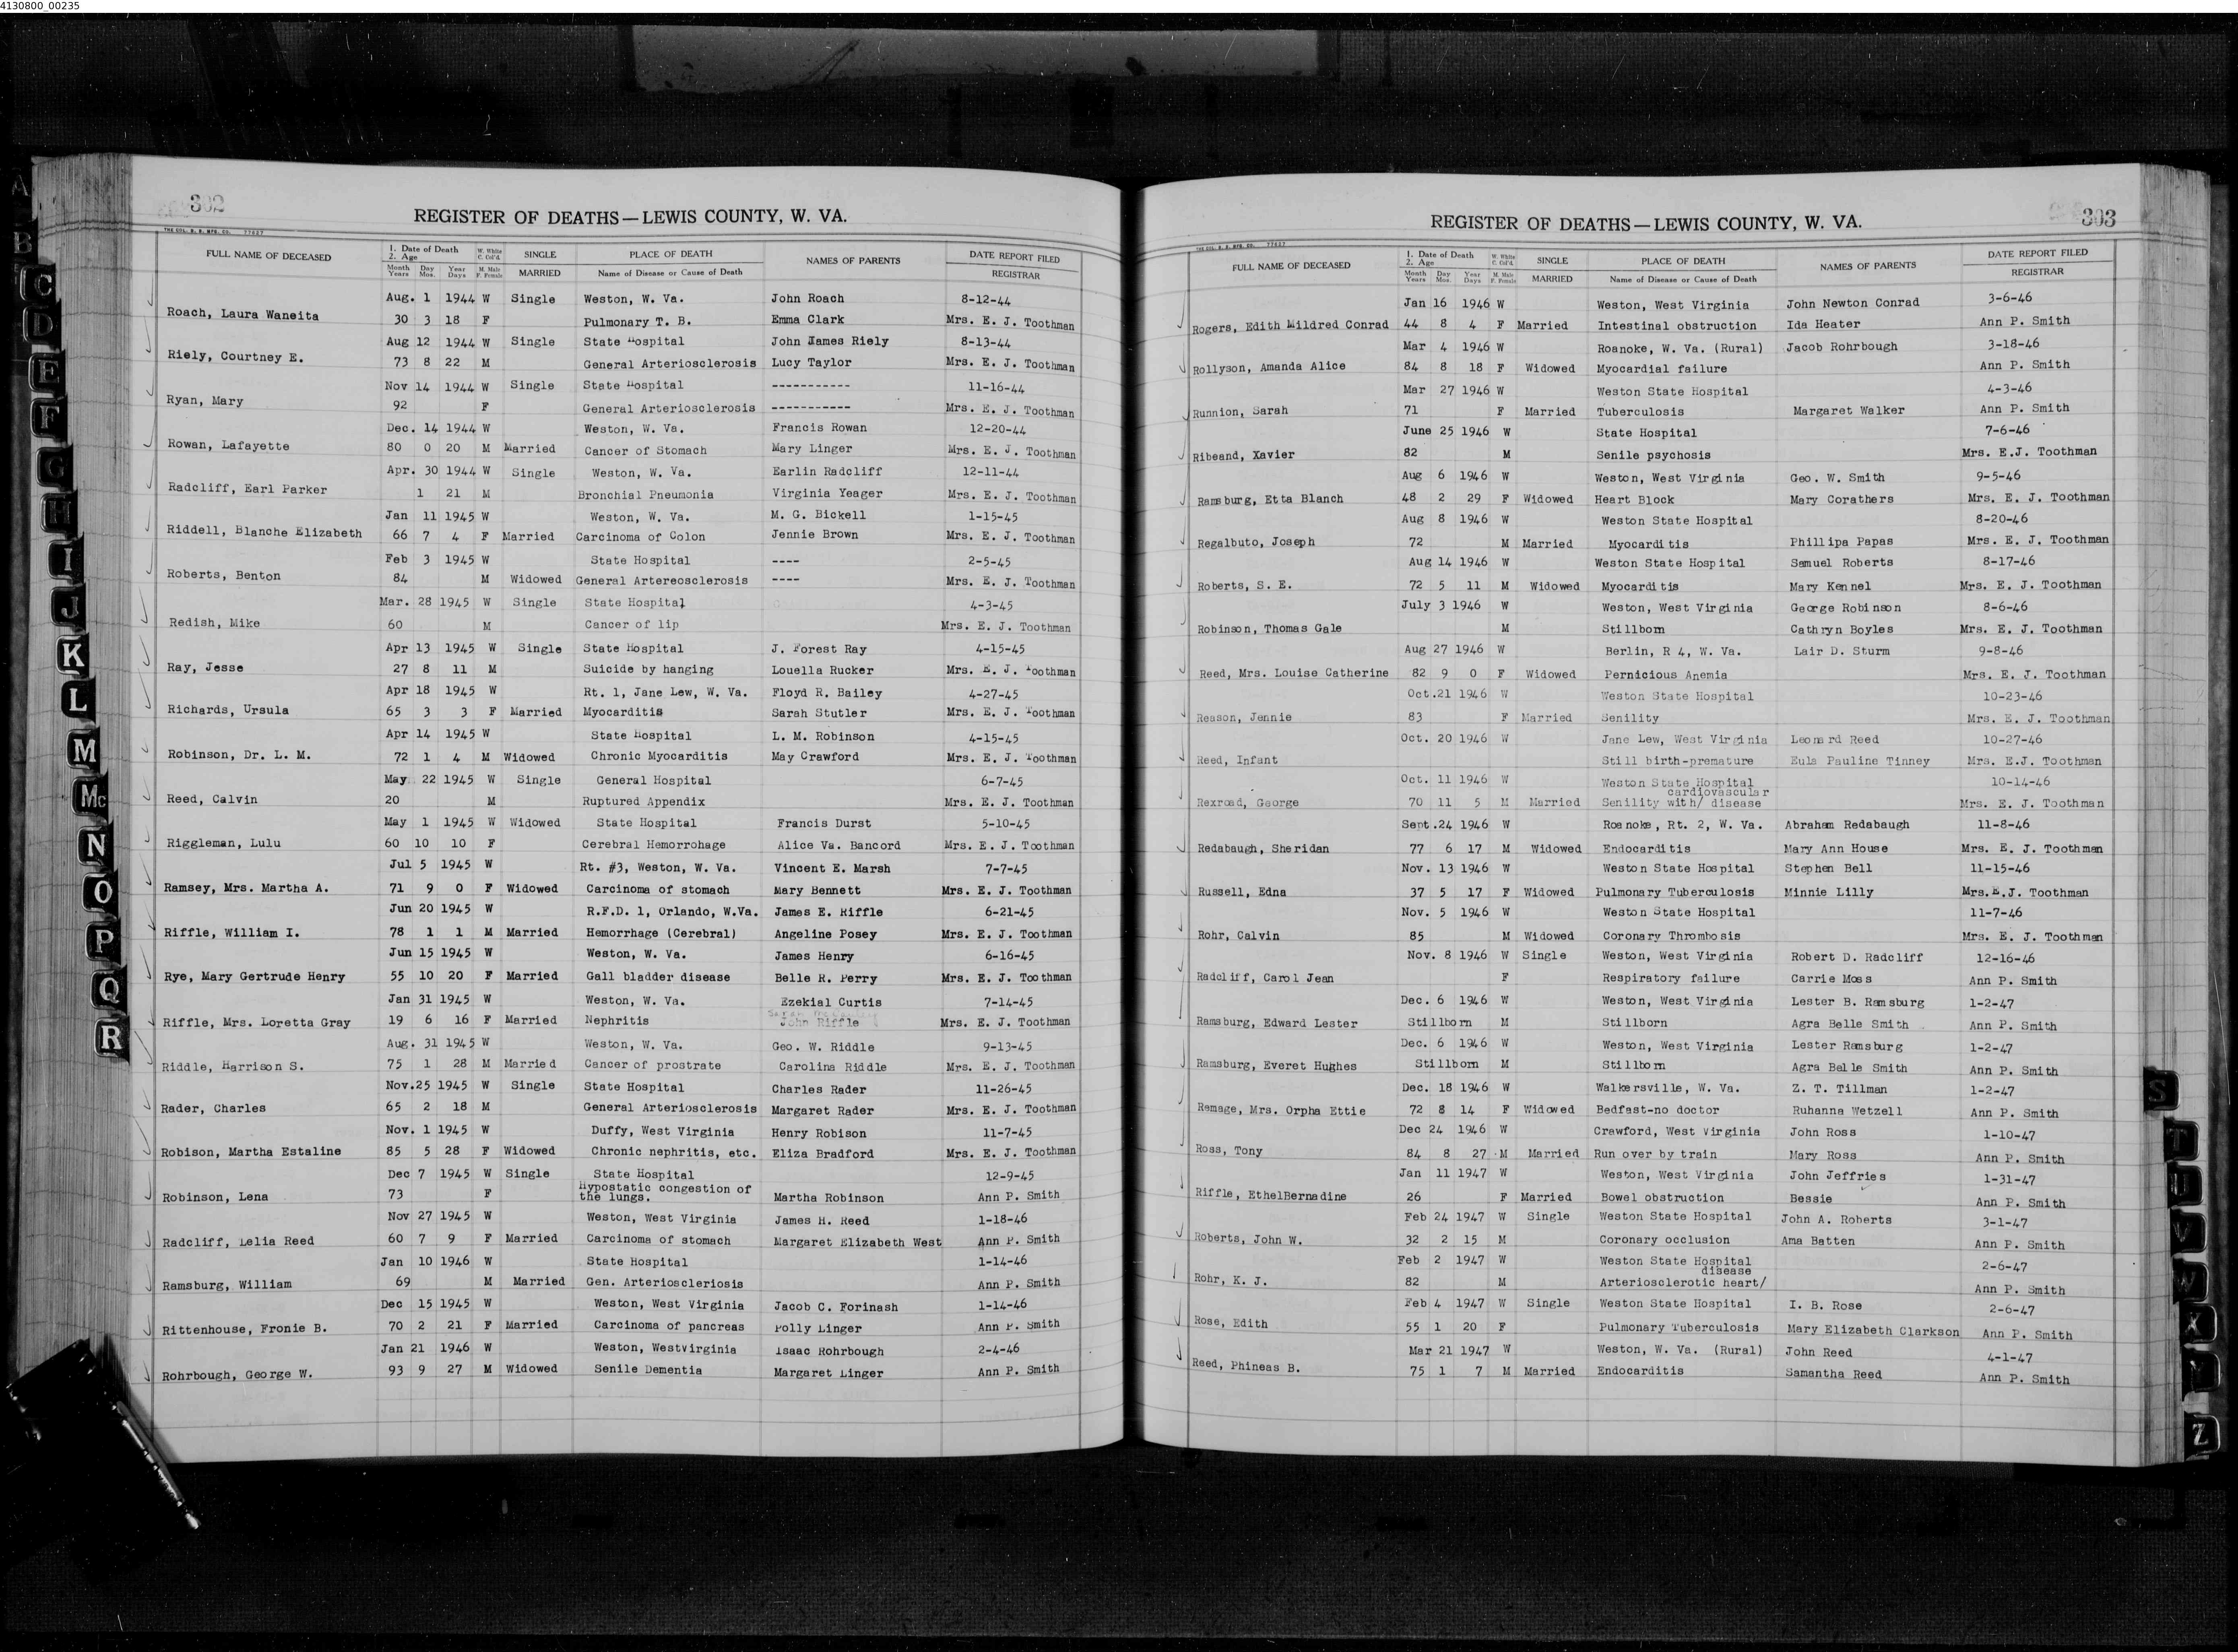 4130800_00235
302
REGISTER OF DEATHS—LEWIS COUNTY, W. VA.
THE COL. B. B. MFG. CO. 77627
FULL NAME OF DECEASED 1. Date of Death 2. Age W. White C. Col'd. SINGLE PLACE OF DEATH NAMES OF PARENTS DATE REPORT FILED
Month Years Day Mos. Year Days M. Male F. Female MARRIED Name of Disease or Cause of Death REGISTRAR
Aug. 1 1944 W Single Weston, W. Va. John Roach 8-12-44
Roach, Laura Waneita 30 3 18 F Pulmonary T. B. Emma Clark Mrs. E. J. Toothman
Aug 12 1944 W Single State Hospital John James Riely 8-13-44
Riely, Courtney E. 73 8 22 M General Arteriosclerosis Lucy Taylor Mrs. E. J. Toothman
Nov 14 1944 W Single State Hospital ----------- 11-16-44
Ryan, Mary 92 F General Arteriosclerosis ----------- Mrs. E. J. Toothman
Dec. 14 1944 W Weston, W. Va. Francis Rowan 12-20-44
Rowan, Lafayette 80 0 20 M Married Cancer of Stomach Mary Linger Mrs. E. J. Toothman
Apr. 30 1944 W Single Weston, W. Va. Earlin Radcliff 12-11-44
Radcliff, Earl Parker 1 21 M Bronchial Pneumonia Virginia Yeager Mrs. E. J. Toothman
Jan 11 1945 W Weston, W. Va. M. G. Bickell 1-15-45
Riddell, Blanche Elizabeth 66 7 4 F Married Carcinoma of Colon Jennie Brown Mrs. E. J. Toothman
Feb 3 1945 W State Hospital ---- 2-5-45
Roberts, Benton 84 M Widowed General Artereosclerosis ---- Mrs. E. J. Toothman
Mar. 28 1945 W Single State Hospital 4-3-45
Redish, Mike 60 M Cancer of lip Mrs. E. J. Toothman
Apr 13 1945 W Single State Hospital J. Forest Ray 4-15-45
Ray, Jesse 27 8 11 M Suicide by hanging Louella Rucker Mrs. E. J. Toothman
Apr 18 1945 W Rt. 1, Jane Lew, W. Va. Floyd R. Bailey 4-27-45
Richards, Ursula 65 3 3 F Married Myocarditis Sarah Stutler Mrs. E. J. Toothman
Apr 14 1945 W State Hospital L. M. Robinson 4-15-45
Robinson, Dr. L. M. 72 1 4 M Widowed Chronic Myocarditis May Crawford Mrs. E. J. Toothman
May 22 1945 W Single General Hospital 6-7-45
Reed, Calvin 20 M Ruptured Appendix Mrs. E. J. Toothman
May 1 1945 W Widowed State Hospital Francis Durst 5-10-45
Riggleman, Lulu 60 10 10 F Cerebral Hemorrohage Alice Va. Bancord Mrs. E. J. Toothman
Jul 5 1945 W Rt. #3, Weston, W. Va. Vincent E. Marsh 7-7-45
Ramsey, Mrs. Martha A. 71 9 0 F Widowed Carcinoma of stomach Mary Bennett Mrs. E. J. Toothman
Jun 20 1945 W R.F.D. 1, Orlando, W.Va. James E. Riffle 6-21-45
Riffle, William I. 78 1 1 M Married Hemorrhage (Cerebral) Angeline Posey Mrs. E. J. Toothman
Jun 15 1945 W Weston, W. Va. James Henry 6-16-45
Rye, Mary Gertrude Henry 55 10 20 F Married Gall bladder disease Belle R. Perry Mrs. E. J. Toothman
Jan 31 1945 W Weston, W. Va. Ezekial Curtis 7-14-45
Sarah
Riffle, Mrs. Loretta Gray 19 6 16 F Married Nephritis John Riffle Mrs. E. J. Toothman
Aug. 31 1945 W Weston, W. Va. Geo. W. Riddle 9-13-45
Riddle, Harrison S. 75 1 28 M Married Cancer of prostrate Carolina Riddle Mrs. E. J. Toothman
Nov.25 1945 W Single State Hospital Charles Rader 11-26-45
Rader, Charles 65 2 18 M General Arteriosclerosis Margaret Rader Mrs. E. J. Toothman
Nov. 1 1945 W Duffy, West Virginia Henry Robison 11-7-45
Robison, Martha Estaline 85 5 28 F Widowed Chronic nephritis, etc. Eliza Bradford Mrs. E. J. Toothman
Dec 7 1945 W Single State Hospital 12-9-45
Hypostatic congestion of
Robinson, Lena 73 F the lungs. Martha Robinson Ann P. Smith
Nov 27 1945 W Weston, West Virginia James H. Reed 1-18-46
Radcliff, Lelia Reed 60 7 9 F Married Carcinoma of stomach Margaret Elizabeth West Ann P. Smith
Jan 10 1946 W State Hospital 1-14-46
Ramsburg, William 69 M Married Gen. Arterioscleriosis Ann P. Smith
Dec 15 1945 W Weston, West Virginia Jacob C. Forinash 1-14-46
Rittenhouse, Fronie B. 70 2 21 F Married Carcinoma of pancreas Polly Linger Ann P. Smith
Jan 21 1946 W Weston, Westvirginia Isaac Rohrbough 2-4-46
Rohrbough, George W. 93 9 27 M Widowed Senile Dementia Margaret Linger Ann P. Smith
A
B
C
D
E
F
G
H
I
J
K
L
M
Mc
N
O
P
Q
R
303
REGISTER OF DEATHS—LEWIS COUNTY, W. VA.
THE COL. B. B. MFG. CO. 77627
FULL NAME OF DECEASED 1. Date of Death 2. Age W. White C. Col'd. SINGLE PLACE OF DEATH NAMES OF PARENTS DATE REPORT FILED
Month Years Day Mos. Year Days M. Male F. Female MARRIED Name of Disease or Cause of Death REGISTRAR
Jan 16 1946 W Weston, West Virginia John Newton Conrad 3-6-46
Rogers, Edith Mildred Conrad 44 8 4 F Married Intestinal obstruction Ida Heater Ann P. Smith
Mar 4 1946 W Roanoke, W. Va. (Rural) Jacob Rohrbough 3-18-46
Rollyson, Amanda Alice 84 8 18 F Widowed Myocardial failure Ann P. Smith
Mar 27 1946 W Weston State Hospital 4-3-46
Runnion, Sarah 71 F Married Tuberculosis Margaret Walker Ann P. Smith
June 25 1946 W State Hospital 7-6-46
Ribeand, Xavier 82 M Senile psychosis Mrs. E.J. Toothman
Aug 6 1946 W Weston, West Virginia Geo. W. Smith 9-5-46
Ramsburg, Etta Blanch 48 2 29 F Widowed Heart Block Mary Corathers Mrs. E. J. Toothman
Aug 8 1946 W Weston State Hospital 8-20-46
Regalbuto, Joseph 72 M Married Myocarditis Phillipa Papas Mrs. E. J. Toothman
Aug 14 1946 W Weston State Hospital Samuel Roberts 8-17-46
Roberts, S. E. 72 5 11 M Widowed Myocarditis Mary Kennel Mrs. E. J. Toothman
July 3 1946 W Weston, West Virginia George Robinson 8-6-46
Robinson, Thomas Gale M Stillborn Cathryn Boyles Mrs. E. J. Toothman
Aug 27 1946 W Berlin, R 4, W. Va. Lair D. Sturm 9-8-46
Reed, Mrs. Louise Catherine 82 9 0 F Widowed Pernicious Anemia Mrs. E. J. Toothman
Oct.21 1946 W Weston State Hospital 10-23-46
Reason, Jennie 83 F Married Senility Mrs. E. J. Toothman
Oct. 20 1946 W Jane Lew, West Virginia Leonard Reed 10-27-46
Reed, Infant Still birth-premature Eula Pauline Tinney Mrs. E.J. Toothman
Oct. 11 1946 W Weston State Hospital 10-14-46
cardiovascular
Rexroad, George 70 11 5 M Married Senility with/ disease Mrs. E. J. Toothman
Sept.24 1946 W Roanoke, Rt. 2, W. Va. Abraham Redabaugh 11-8-46
Redabaugh, Sheridan 77 6 17 M Widowed Endocarditis Mary Ann House Mrs. E. J. Toothman
Nov. 13 1946 W Weston State Hospital Stephen Bell 11-15-46
Russell, Edna 37 5 17 F Widowed Pulmonary Tuberculosis Minnie Lilly Mrs.E.J. Toothman
Nov. 5 1946 W Weston State Hospital 11-7-46
Rohr, Calvin 85 M Widowed Coronary Thrombosis Mrs. E. J. Toothman
Nov. 8 1946 W Single Weston, West Virginia Robert D. Radcliff 12-16-46
Radcliff, Carol Jean F Respiratory failure Carrie Moss Ann P. Smith
Dec. 6 1946 W Weston, West Virginia Lester B. Ramsburg 1-2-47
Ramsburg, Edward Lester Stillborn M Stillborn Agra Belle Smith Ann P. Smith
Dec. 6 1946 W Weston, West Virginia Lester Ramsburg 1-2-47
Ramsburg, Everet Hughes Stillborn M Stillborn Agra Belle Smith Ann P. Smith
Dec. 18 1946 W Walkersville, W. Va. Z. T. Tillman 1-2-47
Ramage, Mrs. Orpha Ettie 72 8 14 F Widowed Bedfast-no doctor Ruhanna Wetzell Ann P. Smith
Dec 24 1946 W Crawford, West Virginia John Ross 1-10-47
Ross, Tony 84 8 27 M Married Run over by train Mary Ross Ann P. Smith
Jan 11 1947 W Weston, West Virginia John Jeffries 1-31-47
Riffle, EthelBernadine 26 F Married Bowel obstruction Bessie Ann P. Smith
Feb 24 1947 W Single Weston State Hospital John A. Roberts 3-1-47
Roberts, John W. 32 2 15 M Coronary occlusion Ama Batten Ann P. Smith
Feb 2 1947 W Weston State Hospital 2-6-47
disease
Rohr, K. J. 82 M Arteriosclerotic heart/ Ann P. Smith
Feb 4 1947 W Single Weston State Hospital I. B. Rose 2-6-47
Rose, Edith 55 1 20 F Pulmonary Tuberculosis Mary Elizabeth Clarkson Ann P. Smith
Mar 21 1947 W Weston, W. Va. (Rural) John Reed 4-1-47
Reed, Phineas B. 75 1 7 M Married Endocarditis Samantha Reed Ann P. Smith
S
T
U
V
W
X
Y
Z